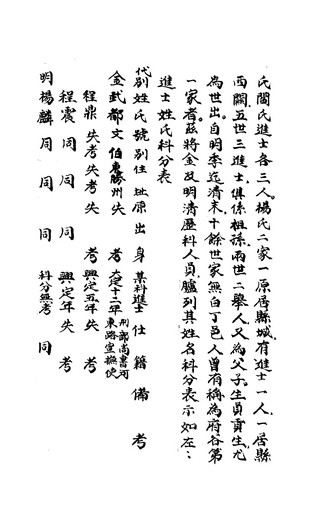 氏閻氏進士各三人。楊氏二家一原居縣城有進士一人一居縣
西關五世三進士俱係祖孫兩世二舉人又為父子生員貢生尤
為世出自明季迄清末十餘世家無白丁邑人曾有稱為府谷第
一家者茲將金及明清歷科人員臚列其姓名科分表示如左：
進士姓氏科分表
代別 姓氏 號別 住址 原出身 某科進士 仕籍 備考
金 武都 文伯 東勝州 失考 大定十二年 刑部尚書河東路宣撫使
程鼎 失考 失考 失考 興定五年 失考
程震 同 同 同 興定年 失考
明 楊麟 同 同 同 科分無考 同